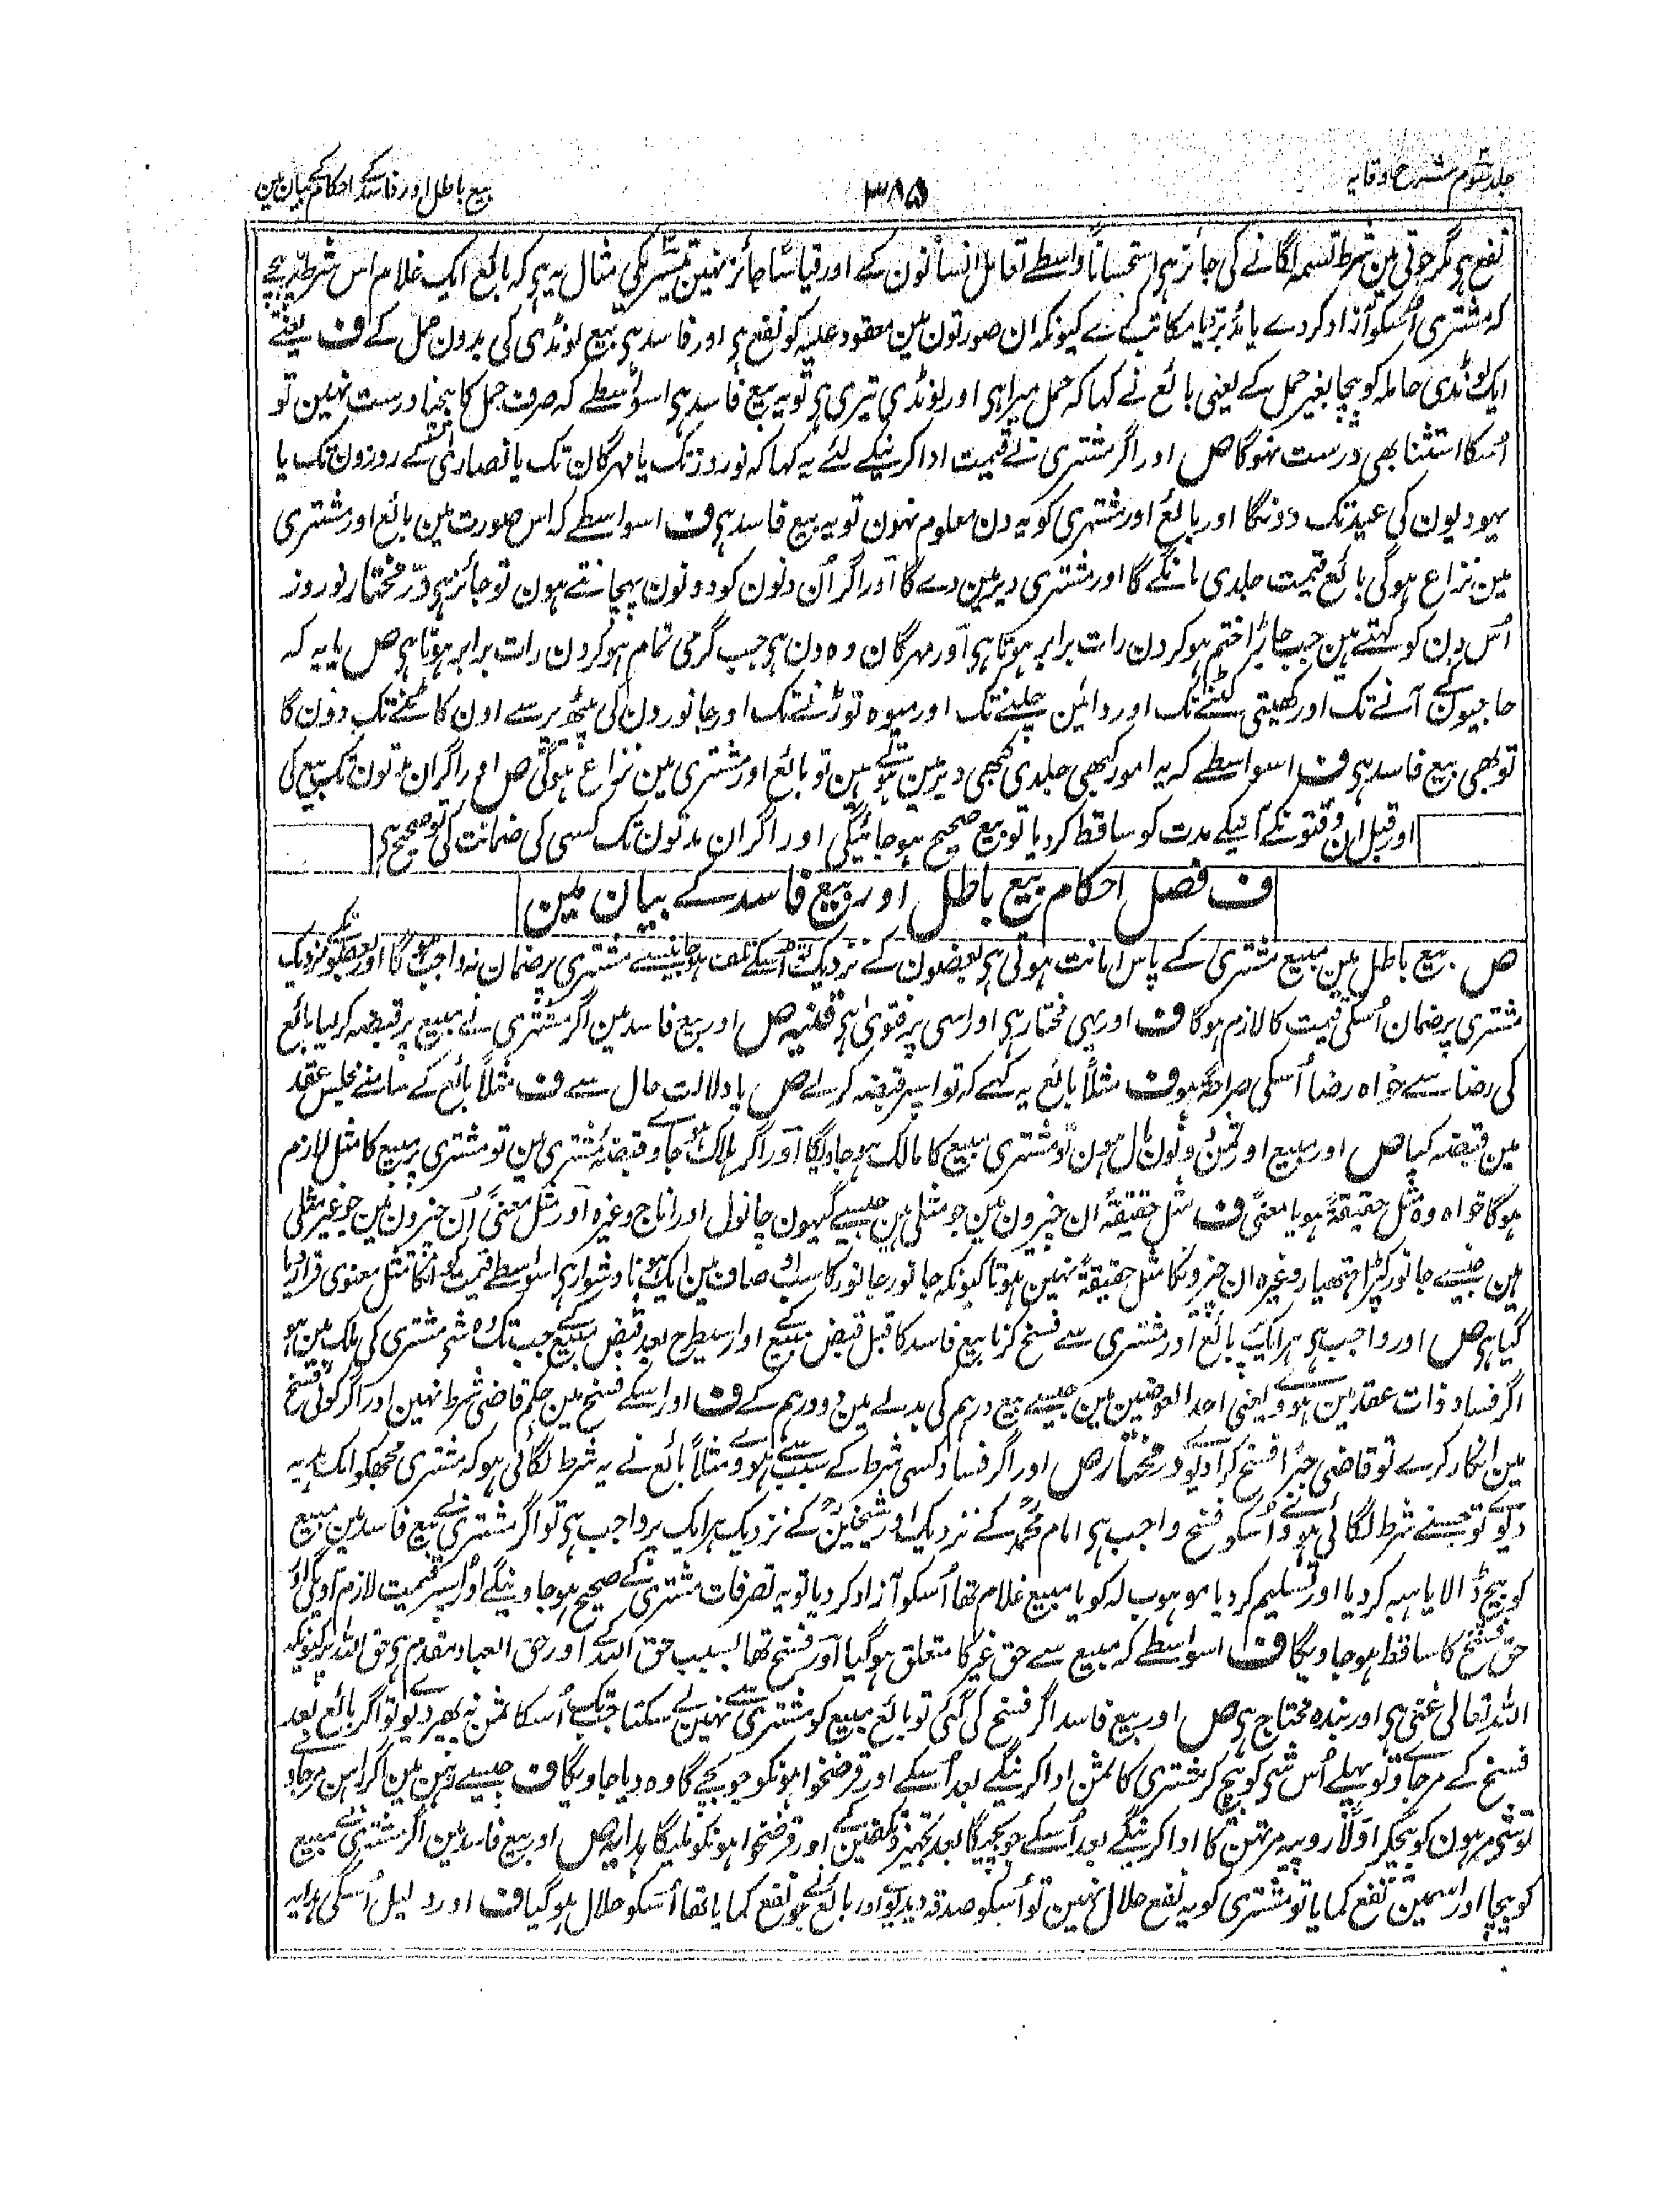 جلد سوم شرح وقایہ
۳۸۵
بیع باطل اور فاسد کے احکام کے بیان مین
نفع ہی مگر جوتی مین شرط تسمہ لگانے کی جائز ہی استحساناً واسطے تعامل انسانون کے اور قیاساً جائز نہین تیسرے کی مثال یہ ہی کہ بائع ایک غلام اس شرط پر بیچے
کہ مشتری اُسکو آزاد کر دے یا مدبر یا مکاتب کرے کیونکہ ان صورتون مین معقود علیہ کو نفع ہی اور فاسد ہی بیع لونڈی کی بدون حمل کے ف یعنے
ایک لونڈی حاملہ کو بیچا بغیر حمل کے یعنی بائع نے کہا کہ حمل میرا ہی اور لونڈی تیری ہی تو یہ بیع فاسد ہی اسواسطے کہ صرف حمل کا بیچنا درست نہین تو
اُسکا استثنا بھی درست نہوگا ص اور اگر مشتری نے قیمت ادا کرنیکے لئے یہ کہا کہ نوروز تک یا مہرگان تک یا نصاریٰ کے روزون تک یا
یہودیون کی عید تک دونگا اور بائع اور مشتری کو یہ دن معلوم نہون تو یہ بیع فاسد ہی ف اسواسطے کہ اس صورت مین بائع اور مشتری
مین نزاع ہوگی بائع قیمت جلدی مانگے گا اور مشتری دیر مین دے گا اور اگر اُن دنون کو دونون پہچانتے ہون تو جائز ہی درّ مختار نوروز
اُس دن کو کہتے ہین جب جاڑا ختم ہو کر دن رات برابر ہوتا ہی اور مہرگان وہ دن ہی جب گرمی تمام ہو کر دن رات برابر ہوتا ہی ص یا یہ کہ
حاجیون کے آنے تک اور کھیتی کٹنے تک اور دائین چلنے تک اور میوہ توڑنے تک اور جانورون کی پیٹھ پر سے اون کاٹنے تک دون گا
تو بھی بیع فاسد ہی ف اسواسطے کہ یہ امور کبھی جلدی کبھی دیر مین ہوتے ہین تو بائع اور مشتری مین نزاع ہوگی ص اور اگر ان مدتون تک بیع کی
اور قبل ان وقتونکے آنیکے مدت کو ساقط کر دیا تو بیع صحیح ہو جائیگی اور اگر ان مدتون تک کسی کی ضمانت کی تو صحیح ہی
ف فصل احکام بیع باطل اور بیع فاسد کے بیان مین
ص بیع باطل مین مبیع مشتری کے پاس امانت ہوتی ہی بعضون کے نزدیک تو اُسکے تلف ہو جانیسے مشتری پر ضمان نہ واجب ہوگا اور بعضونکے نزدیک
مشتری پر ضمان اُسکی قیمت کا لازم ہوگا ف اور یہی مختار ہی اور اسی پر فتویٰ ہی قنیہ ص اور بیع فاسد مین اگر مشتری نے مبیع پر قبضہ کر لیا بائع
کی رضا سے خواہ رضا اُسکی صراحۃً ہو ف مثلاً بائع یہ کہے کہ تو اسپر قبضہ کر لے ص یا دلالت حال سے ف مثلاً بائع کے سامنے مجلس عقد
مین قبضہ کیا ص اور مبیع اور ثمن دونون مال ہون تو مشتری مبیع کا مالک ہو جاویگا اور اگر ہلاک ہو جاوے قبضۂ مشتری مین تو مشتری پر مبیع کا مثل لازم
ہوگا خواہ وہ مثل حقیقۃً ہو یا معنیً ف مثل حقیقۃً ان چیزون مین جو مثلی ہین جیسے گیہون چانول اور اناج وغیرہ اور مثل معنیً اُن چیزون مین جو غیر مثلی
ہین جیسے جانور کپڑا ہتھیار وغیرہ ان چیزونکا مثل حقیقۃً نہین ہوتا کیونکہ جانور جانور کا سب اوصاف مین ایک ہونا دشوار ہی اسواسطے قیمت کو انکا مثل معنوی قرار دیا
گیا ہی ص اور واجب ہی ہر ایک پر بائع اور مشتری سے فسخ کرنا بیع فاسد کا قبل قبض مبیع کے اور اسیطرح بعد قبض مبیع کے جب تک وہ شی مشتری کی ملک مین ہو
اگر فساد ذات عقد مین ہووے یعنی احد العوضین مین جیسے بیع درہم کی بدلے مین دو درہم کے ف اور اسکے فسخ مین حکم قاضی شرط نہین اور اگر کوئی فسخ
مین انکار کرے تو قاضی جبراً فسخ کرا دیوے درّ مختار ص اور اگر فساد کسی شرط کے سبب سے ہووے مثلاً بائع نے یہ شرط لگائی ہو کہ مشتری مجھکو ایک ہدیہ
دیوے تو جسنے شرط لگائی ہووے اُسکو فسخ واجب ہی امام محمدؒ کے نزدیک اور شیخینؒ کے نزدیک ہر ایک پر واجب ہی تو اگر مشتری نے بیع فاسد مین مبیع
کو بیچ ڈالا یا ہبہ کر دیا اور تسلیم کر دیا موہوب لہ کو یا مبیع غلام تھا اُسکو آزاد کر دیا تو یہ تصرفات مشتری کے صحیح ہو جاوینگے اور اُسپر قیمت لازم آویگی اور
حق فسخ کا ساقط ہو جاویگا ف اسواسطے کہ مبیع سے حق غیر کا متعلق ہوگیا اور فسخ تھا بسبب حق اللہ کے اور حق العباد مقدم ہی حق اللہ پر کیونکہ
اللہ تعالی غنی ہی اور بندہ محتاج ہی ص اور بیع فاسد اگر فسخ کی گئی تو بائع مبیع کو مشتری سے نہین لے سکتا جبتک اُسکا ثمن نہ پھیر دیوے تو اگر بائع بعد
فسخ کے مر جاوے تو پہلے اُس شی کو بیچ کر مشتری کا ثمن ادا کرینگے بعد اُسکے اور قرضخواہونکو جو بچے گا وہ دیا جاویگا ف جیسے رہن مین اگر راہن مر جاوے
تو شی مرہون کو بیچکر اوّلاً روپیہ مرتہن کا ادا کرینگے بعد اُسکے جو بچیگا بعد تجہیز و تکفین کے اور قرضخواہونکو ملیگا ہدایہ ص اور بیع فاسد مین اگر مشتری نے مبیع
کو بیچا اور اسمین نفع کمایا تو مشتری کو یہ نفع حلال نہین تو اُسکو صدقہ دیدیوے اور بائع نے جو نفع کمایا تھا اُسکو حلال ہو گیا ف اور دلیل اُسکی ہدایہ